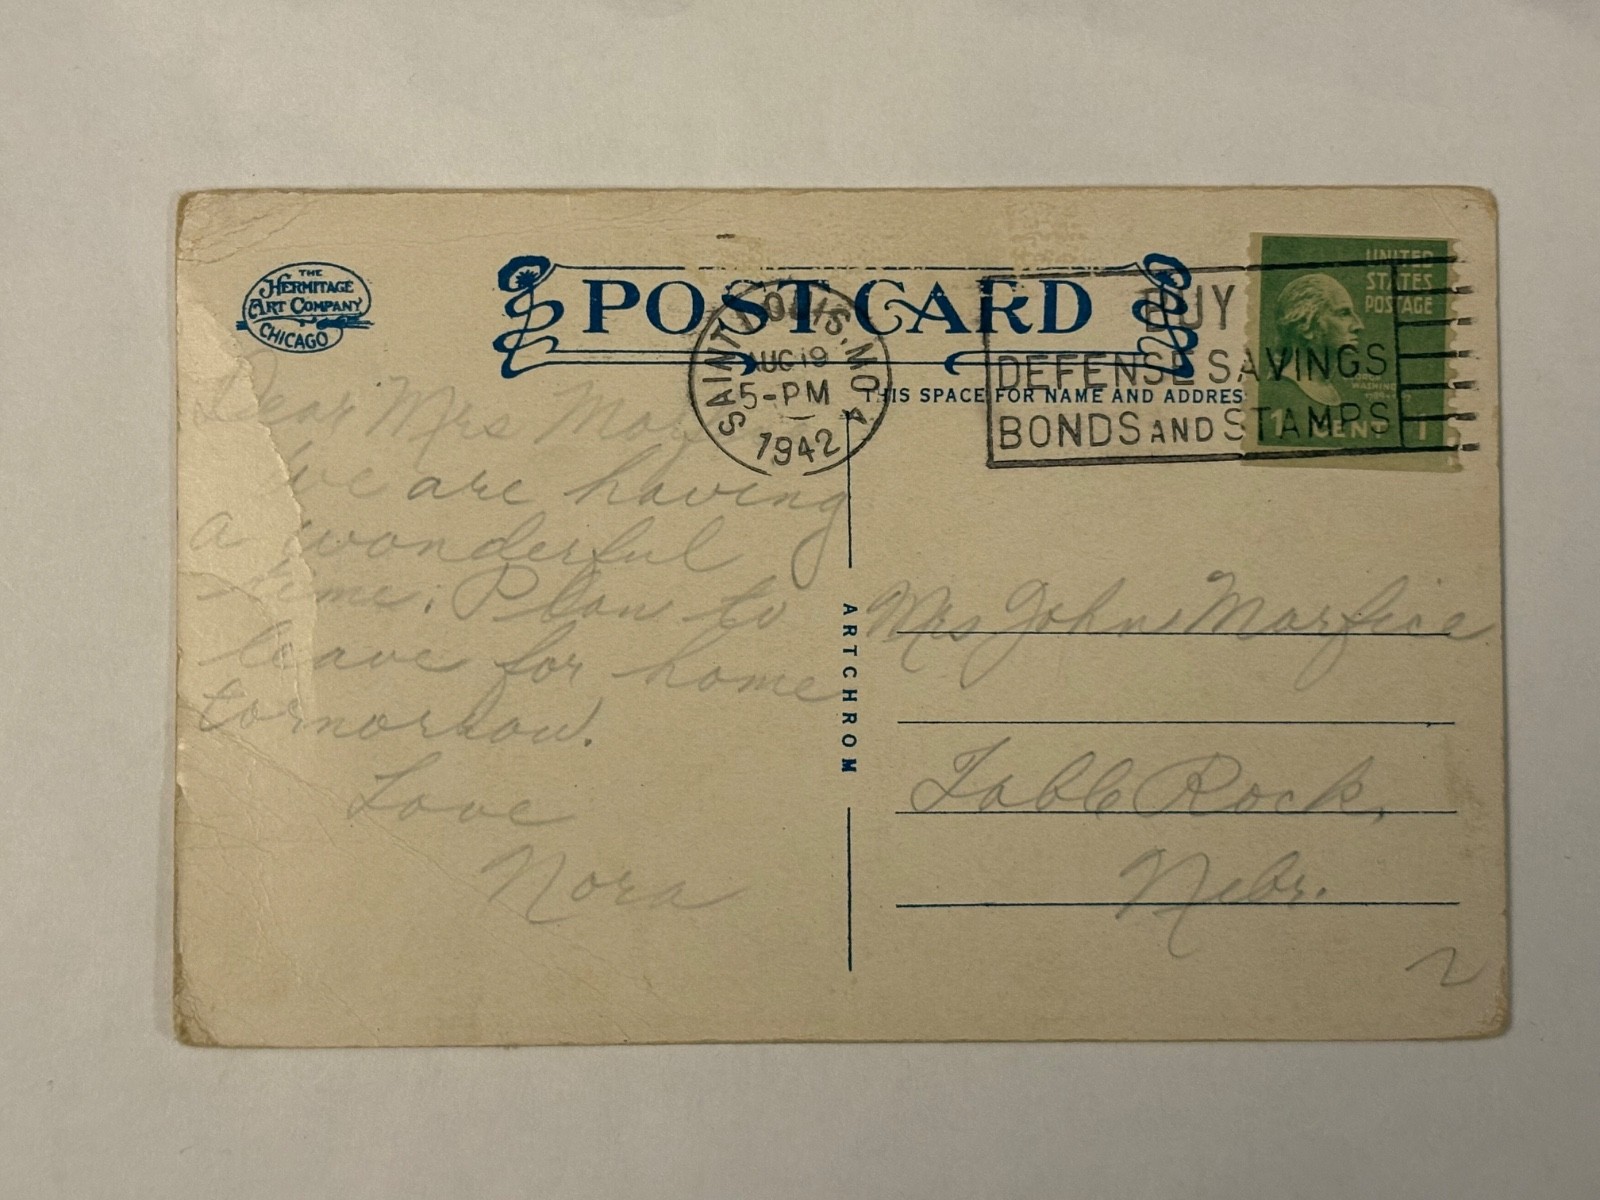 THE
HERMITAGE
ART COMPANY
CHICAGO
POST CARD
SAINT LOUIS, MO.
AUG 19
5-PM
1942
BUY
DEFENSE SAVINGS
BONDS AND STAMPS
UNITED
STATES
POSTAGE
1 CENT 1
THIS SPACE FOR NAME AND ADDRES
Dear Mrs
We are having
a wonderful
time. Plan to
leave for home
tomorrow.
Love
Nora
ARTCHROM
Mrs John Marfice
Table Rock,
Nebr.